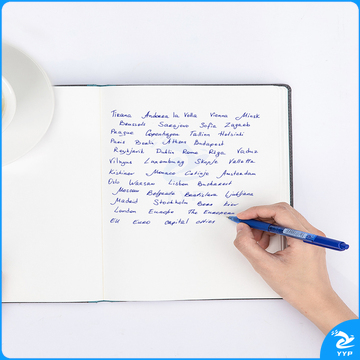 Tirana Andorra la Vella Vienna Minsk
Brussels Sarajevo Sofia Zagreb
Prague Copenhagen Tallinn Helsinki
Paris Berlin Athens Budapest
Reykjavik Dublin Rome Riga Vaduz
Vilnyus Luxembourg Skopje Valletta
Kishinev Monaco Cetinje Amsterdam
Oslo Warsaw Lisbon Bucharest
Moscow Belgrade Bratislava Ljubljana
Madrid Stockholm Bern Kiev
London Europe The European
EU Euro capital cities
YYP